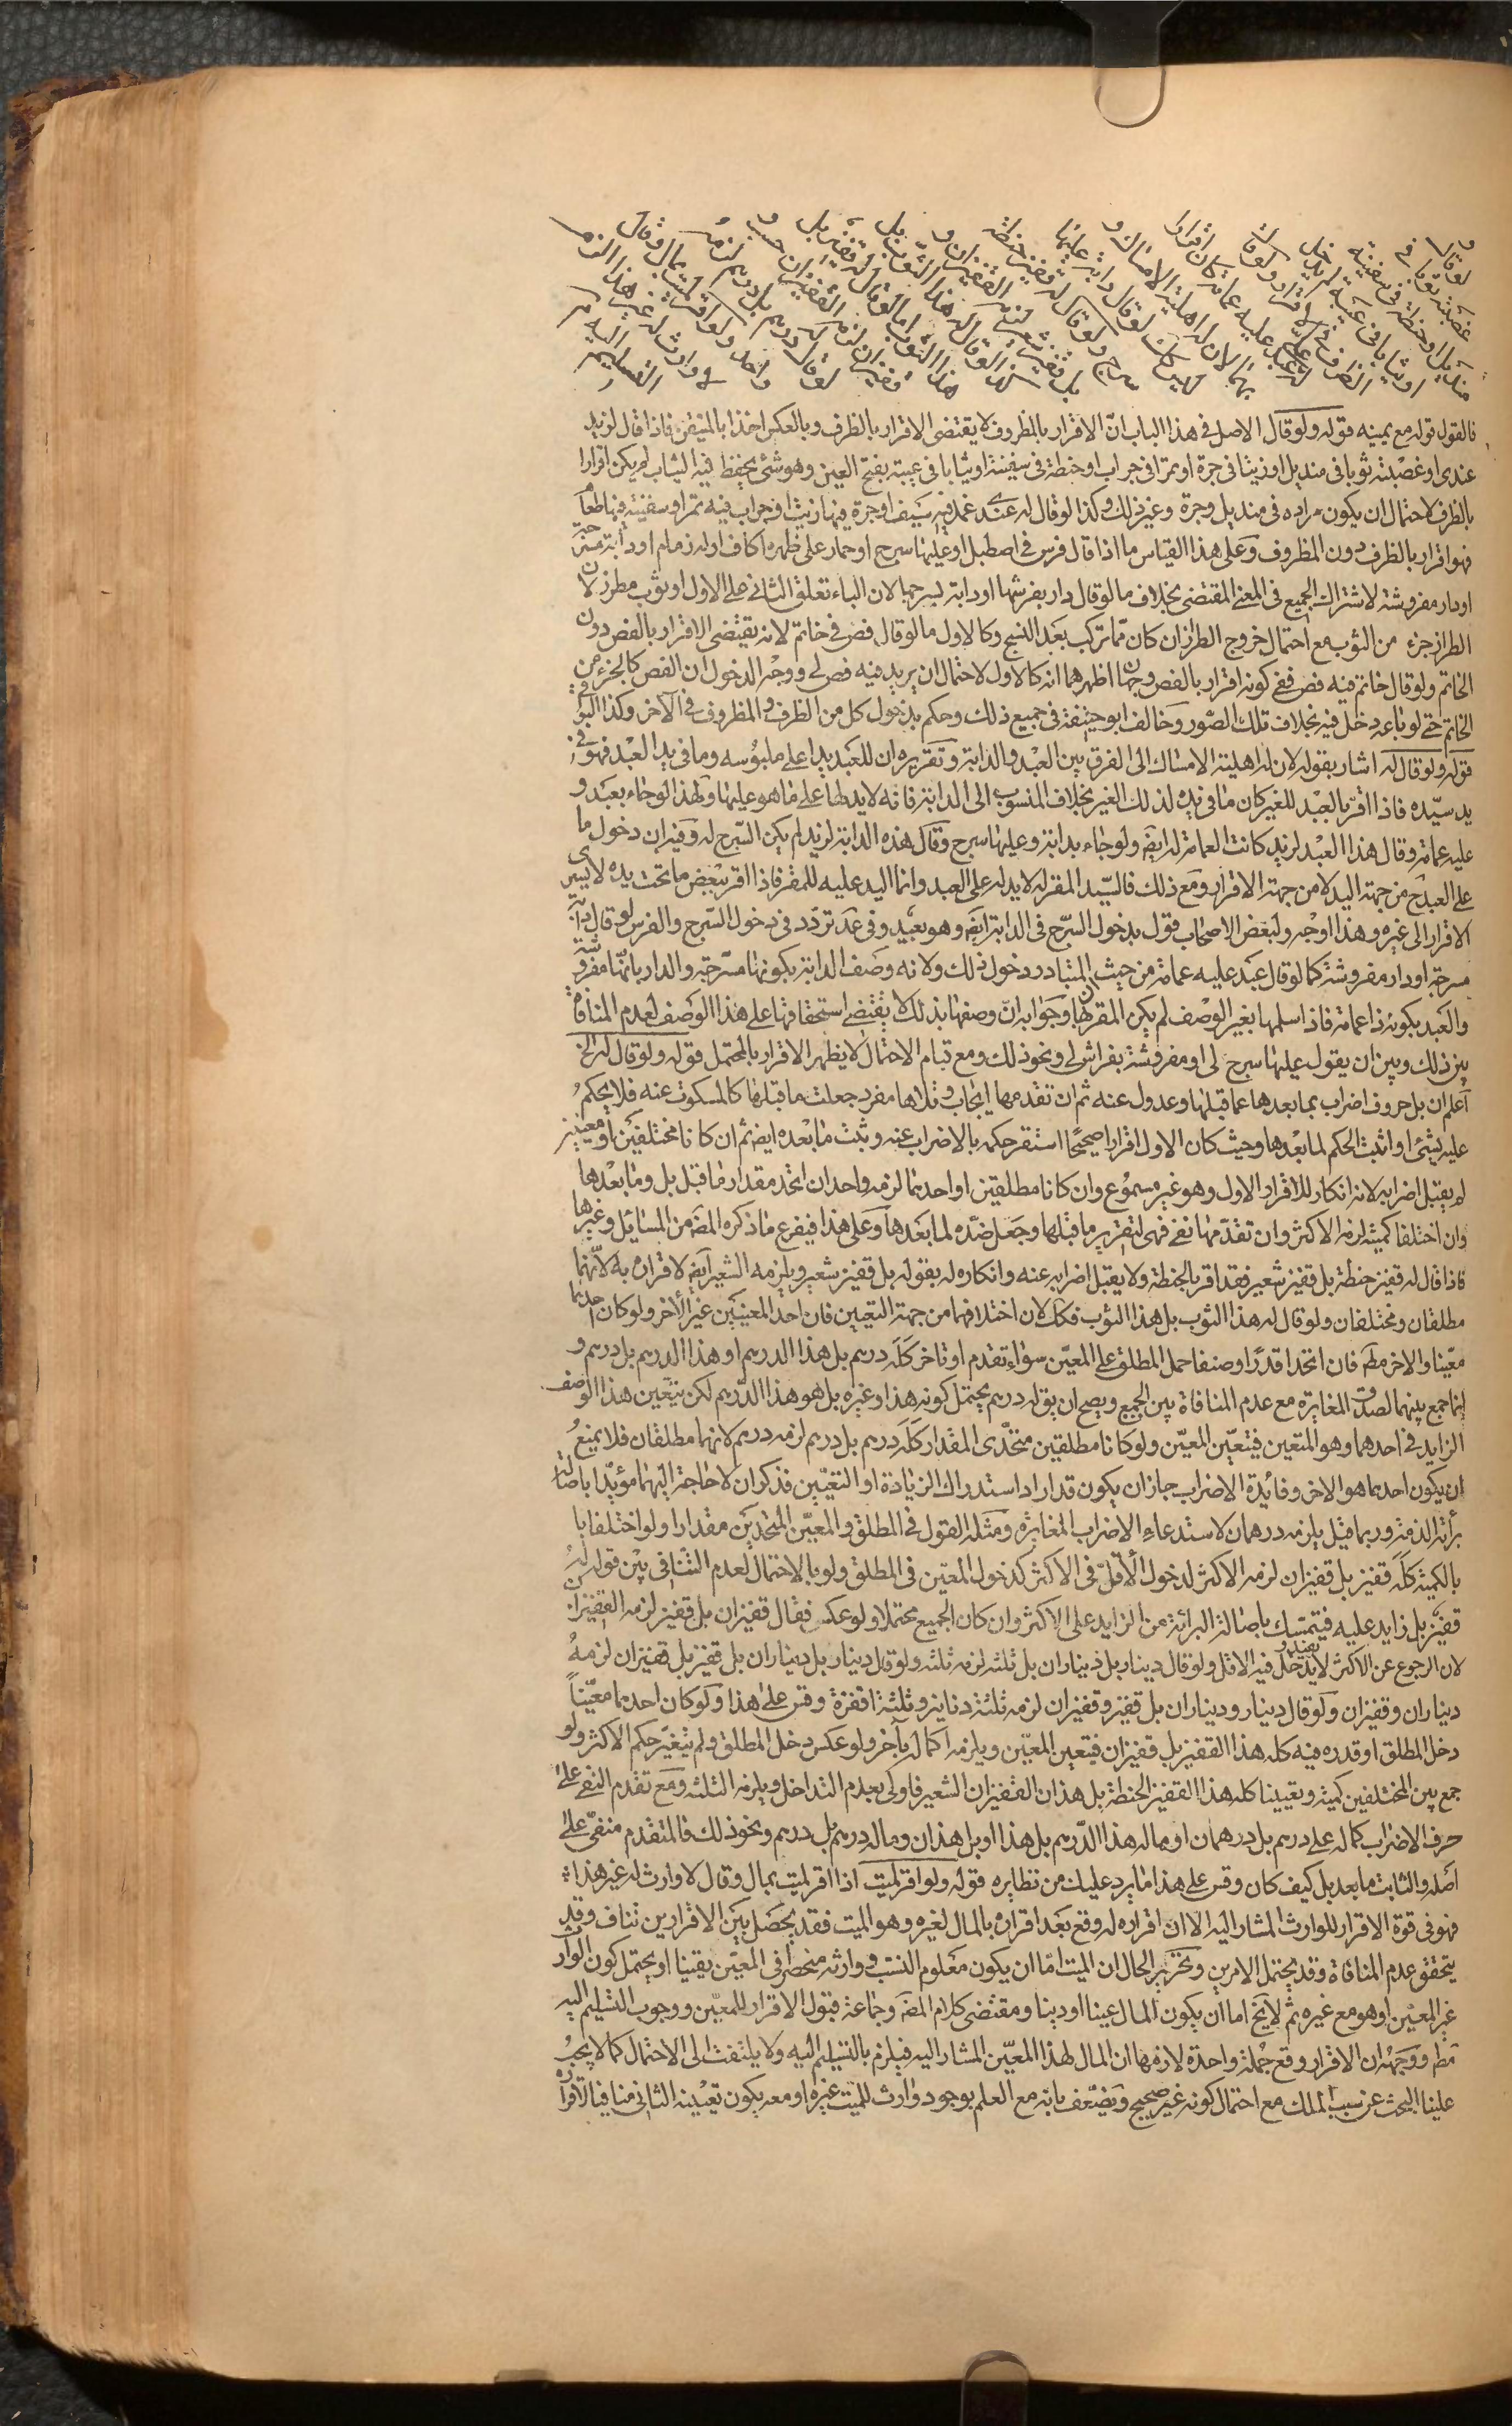 ولو قال
غصبته ثوبا في
منديل او حنطة في سفينة
او ثيابا في عيبة لم يدخل
الظرف في الاقرار ولو قال
له عندي عبد عليه عمامة كان اقرارا
بهما لان له اهلية الامساك و
ليس كذلك لو قال دابة عليها
سرج ولو قال له قفيز حنطة
بل قفيز شعير لزمه القفيزان و
كذا لو قال له هذا الثوب بل
هذا الثوب اما لو قال له قفيز بل
قفيزان لزمه القفيزان حسب و
لو قال له درهم بل درهم لزمه
واحد ولو اقر لميت بمال وقال
لا وارث له غير هذا الزم
التسليم اليه
فالقول قوله مع يمينه قوله ولو قال الاصل في هذا الباب ان الاقرار بالمظروف لا يقتضى الاقرار بالظرف وبالعكس اخذا بالمتيقن فاذا قال لزيد
عندى او غصبته ثوبا في منديل او زيتا في جرة او تمرا في جراب او حنطة في سفينة او ثيابا في عيبة بفتح العين وهو شئ يحفظ فيه الثياب لم يكن اقرارا
بالظرف لاحتمال ان يكون مراده في منديل وجرة وغير ذلك وكذا لو قال له عندى غمد فيه سيف او جرة فيها زيت او جراب فيه تمر او سفينة فيها طعام
فهو اقرار بالظرف دون المظروف وعلى هذا القياس ما اذا قال فرس في اصطبل او عليها سرج او حمار على ظهره اكاف او له زمام او دابة مسرجة
او دار مفروشة لاشتراك الجميع في المعنى المقتضى بخلاف ما لو قال دار بفرشها او دابة بسرجها لان الباء تعلق الثاني على الاول او ثوب مطرز لان
الطراز جزء من الثوب مع احتمال خروج الطراز ان كان مما تركب بعد النسج وكالاول ما لو قال فص في خاتم لانه يقتضى الاقرار بالفص دون
الخاتم ولو قال خاتم فيه فص ففي كونه اقرار بالفص وجهان اظهرهما انه كالاول لاحتمال ان يريد فيه فص لى ووجه الدخول ان الفص كالجزء من
الخاتم حتى لو باعه دخل فيه بخلاف تلك الصور وخالف ابو حنيفة في جميع ذلك وحكم بدخول كل من الظرف والمظروف في الآخر وكذا البواقي
قوله ولو قال له اشار بقوله لان له اهلية الامساك الى الفرق بين العبد والدابة وتقريره ان للعبد يدا على ملبوسه وما في يد العبد فهو في
يد سيده فاذا اقر بالعبد للغير كان ما في يده لذلك الغير بخلاف المنسوب الى الدابة فانه لا يد لها على ما هو عليها ولهذا لو جاء بعبد و
عليه عمامة وقال هذا العبد لزيد كانت العمامة له ايضا ولو جاء بدابة وعليها سرج وقال هذه الدابة لزيد لم يكن السرج له وفيه ان دخول ما
على العبد ح من جهة اليد لا من جهة الاقرار ومع ذلك فالسيد المقر له لا يد له على العبد وانما اليد عليه للمقر فاذا اقر ببعض ما تحت يده لا يسرى
الاقرار الى غيره وهذا اوجه ولبعض الاصحاب قول بدخول السرج في الدابة ايضا وهو بعيد وفى عد تردد في دخول السرج والفرس لو قال دابة
مسرجة او دار مفروشة كما لو قال عبد عليه عمامة من حيث المتبادر دخول ذلك ولانه وصف الدابة بكونها مسرجة والدار بانها مفروشة
والعبد بكونه ذا عمامة فاذا سلمها بغير الوصف لم يكن المقر بها وجوابه ان وصفها بذلك لا يقتضى استحقاقها على هذا الوصف لعدم المنافاة
بين ذلك وبين ان يقول عليها سرج لى او مفروشة بفراش لى ونحو ذلك ومع قيام الاحتمال لا يظهر الاقرار بالمحتمل قوله ولو قال له الخ
اعلم ان بل حروف اضراب بما بعدها عما قبلها وعدول عنه ثم ان تقدمها ايجاب وتلاها مفرد جعلت ما قبلها كالمسكوت عنه فلا يحكم
عليه بشئ واثبت الحكم لما بعدها وحيث كان الاول اقرارا صحيحا استقر حكمه بالاضراب عنه وثبت ما بعده ايضا ثم ان كانا مختلفين او معينين
لم يقبل اضرابه لانه انكار للاقرار الاول وهو غير مسموع وان كانا مطلقين او احدهما لزمه واحد ان اتحد مقدار ما قبل بل وما بعدها
وان اختلفا كمية لزمه الاكثر وان تقدمها نفي فهى لتقرير ما قبلها وجعل ضده لما بعدها وعلى هذا فيفرع ما ذكره المصنف من المسائل وغيرها
فاذا قال له قفيز حنطة بل قفيز شعير فقد اقر بالحنطة ولا يقبل اضرابه عنه وانكاره له بقوله بل قفيز شعير ويلزمه الشعير ايضا لاقراره به لانهما
مطلقان ومختلفان ولو قال له هذا الثوب بل هذا الثوب فكك لان اختلافهما من جهة التعيين فان احد المعينين غير الاخر ولو كان احدهما
معينا والاخر مطلقا فان اتحدا قدرا ووصفا حمل المطلق على المعين سواء تقدم او تاخر كله درهم بل هذا الدرهم او هذا الدرهم بل درهم و
انما جمع بينهما لصدق المغايرة مع عدم المنافاة بين الجميع ويصح ان يق له درهم يحتمل كونه هذا وغيره بل هو هذا الدرهم لكن يتعين هذا الوصف
الزايد في احدهما وهو المتعين فيتعين المعين ولو كانا مطلقين متحدى المقدار كله درهم بل درهم لزمه درهم لانهما مطلقان فلا يمنع
ان يكون احدهما هو الاخر وفائدة الاضراب جاز ان يكون قد اراد استدراك الزيادة او التعيين فذكر ان لا حاجة اليهما مؤيدا باصالة
برائة الذمة وربما قيل يلزمه درهمان لاستدعاء الاضراب المغايرة ومثله القول في المطلق والمعين المتحدين مقدارا ولو اختلفا با
بالكمية كله قفيز بل قفيزان لزمه الاكثر لدخول الاقل في الاكثر كدخول المعين في المطلق ولو بالاحتمال لعدم التنافي بين قوله له
قفيز بل زايد عليه فيتمسك باصالة البرائة من الزايد على الاكثر وان كان الجميع محتملا ولو عكس فقال قفيزان بل قفيز لزمه القفيزان
لان الرجوع عن الاكثر لا يقبل ويدخل فيه الاقل ولو قال دينار بل ديناران بل ثلثه لزمه ثلثه ولو قال دينار بل ديناران بل قفيز بل قفيزان لزمه
ديناران وقفيزان ولو قال دينار وديناران بل قفيز وقفيزان لزمه ثلثة دنانير وثلثة اقفزة وقس على هذا ولو كان احدهما معينا
دخل المطلق او قدره فيه كله هذا القفيز بل قفيزان فيتعين المعين ويلزمه اكماله بآخر ولو عكس دخل المطلق ولم يتغير حكم الاكثر ولو
جمع بين المختلفين كمية وتعيينا كله هذا القفيز الحنطة بل هذان القفيزان الشعير فاولى بعدم التداخل ويلزمه الثلثة ومع تقدم النفي على
حرف الاضراب كما له على درهم بل درهمان او ماله هذا الدرهم بل هذا او بل هذان وماله درهم بل درهم ونحو ذلك فالمتقدم منفى على
اصله والثابت ما بعد بل كيف كان وقس على هذا ما يرد عليك من نظايره قوله ولو اقر لميت اذا اقر لميت بمال وقال لا وارث له غير هذا
فهو في قوة الاقرار للوارث المشار اليه الا ان اقراره له وقع بعد اقراره بالمال لغيره وهو الميت فقد يحصل بين الاقرارين تناف وقد
يتحقق عدم المنافاة وقد يحتمل الامرين وتحرير الحال ان الميت اما ان يكون معلوم النسب ووارثه منحصرا في المعين يقينا او يحتمل كون الوارث
غير المعين او هو مع غيره ثم لا يخ اما ان يكون المال عينا او دينا ومقتضى كلام المصنف وجماعة قبول الاقرار للمعين ووجوب التسليم اليه
مطم ووجهه ان الاقرار وقع جملة واحدة لازمها ان المال لهذا المعين المشار اليه فيلزم بالتسليم اليه ولا يلتفت الى الاحتمال كما لا يجب
علينا البحث عن سبب الملك مع احتمال كونه غير صحيح ويضعف بانه مع العلم بوجود وارث للميت غيره او معه يكون تعيينه الثاني منافيا لاقراره